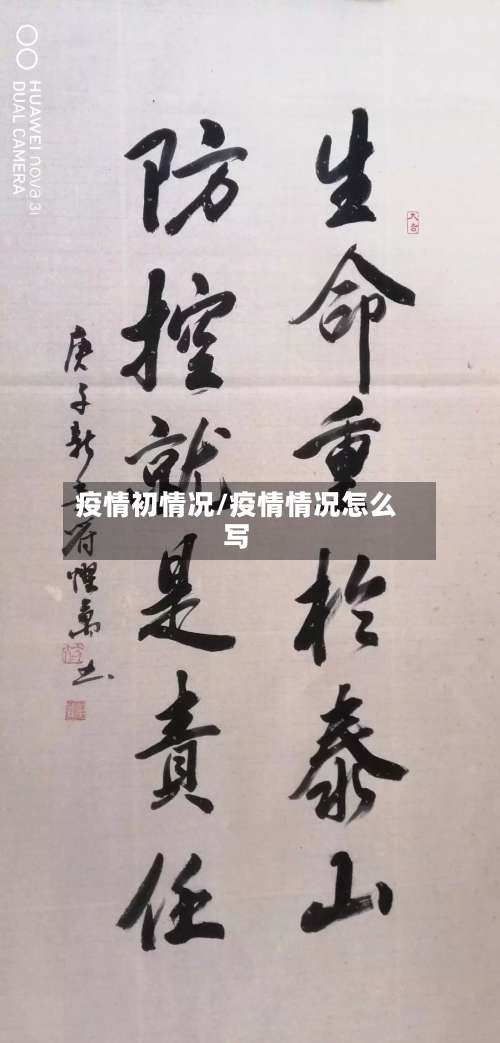 HUAWEI nova 3i
DUAL CAMERA
生命重於泰山
防控就是責任
疫情初情况/疫情情况怎么
写